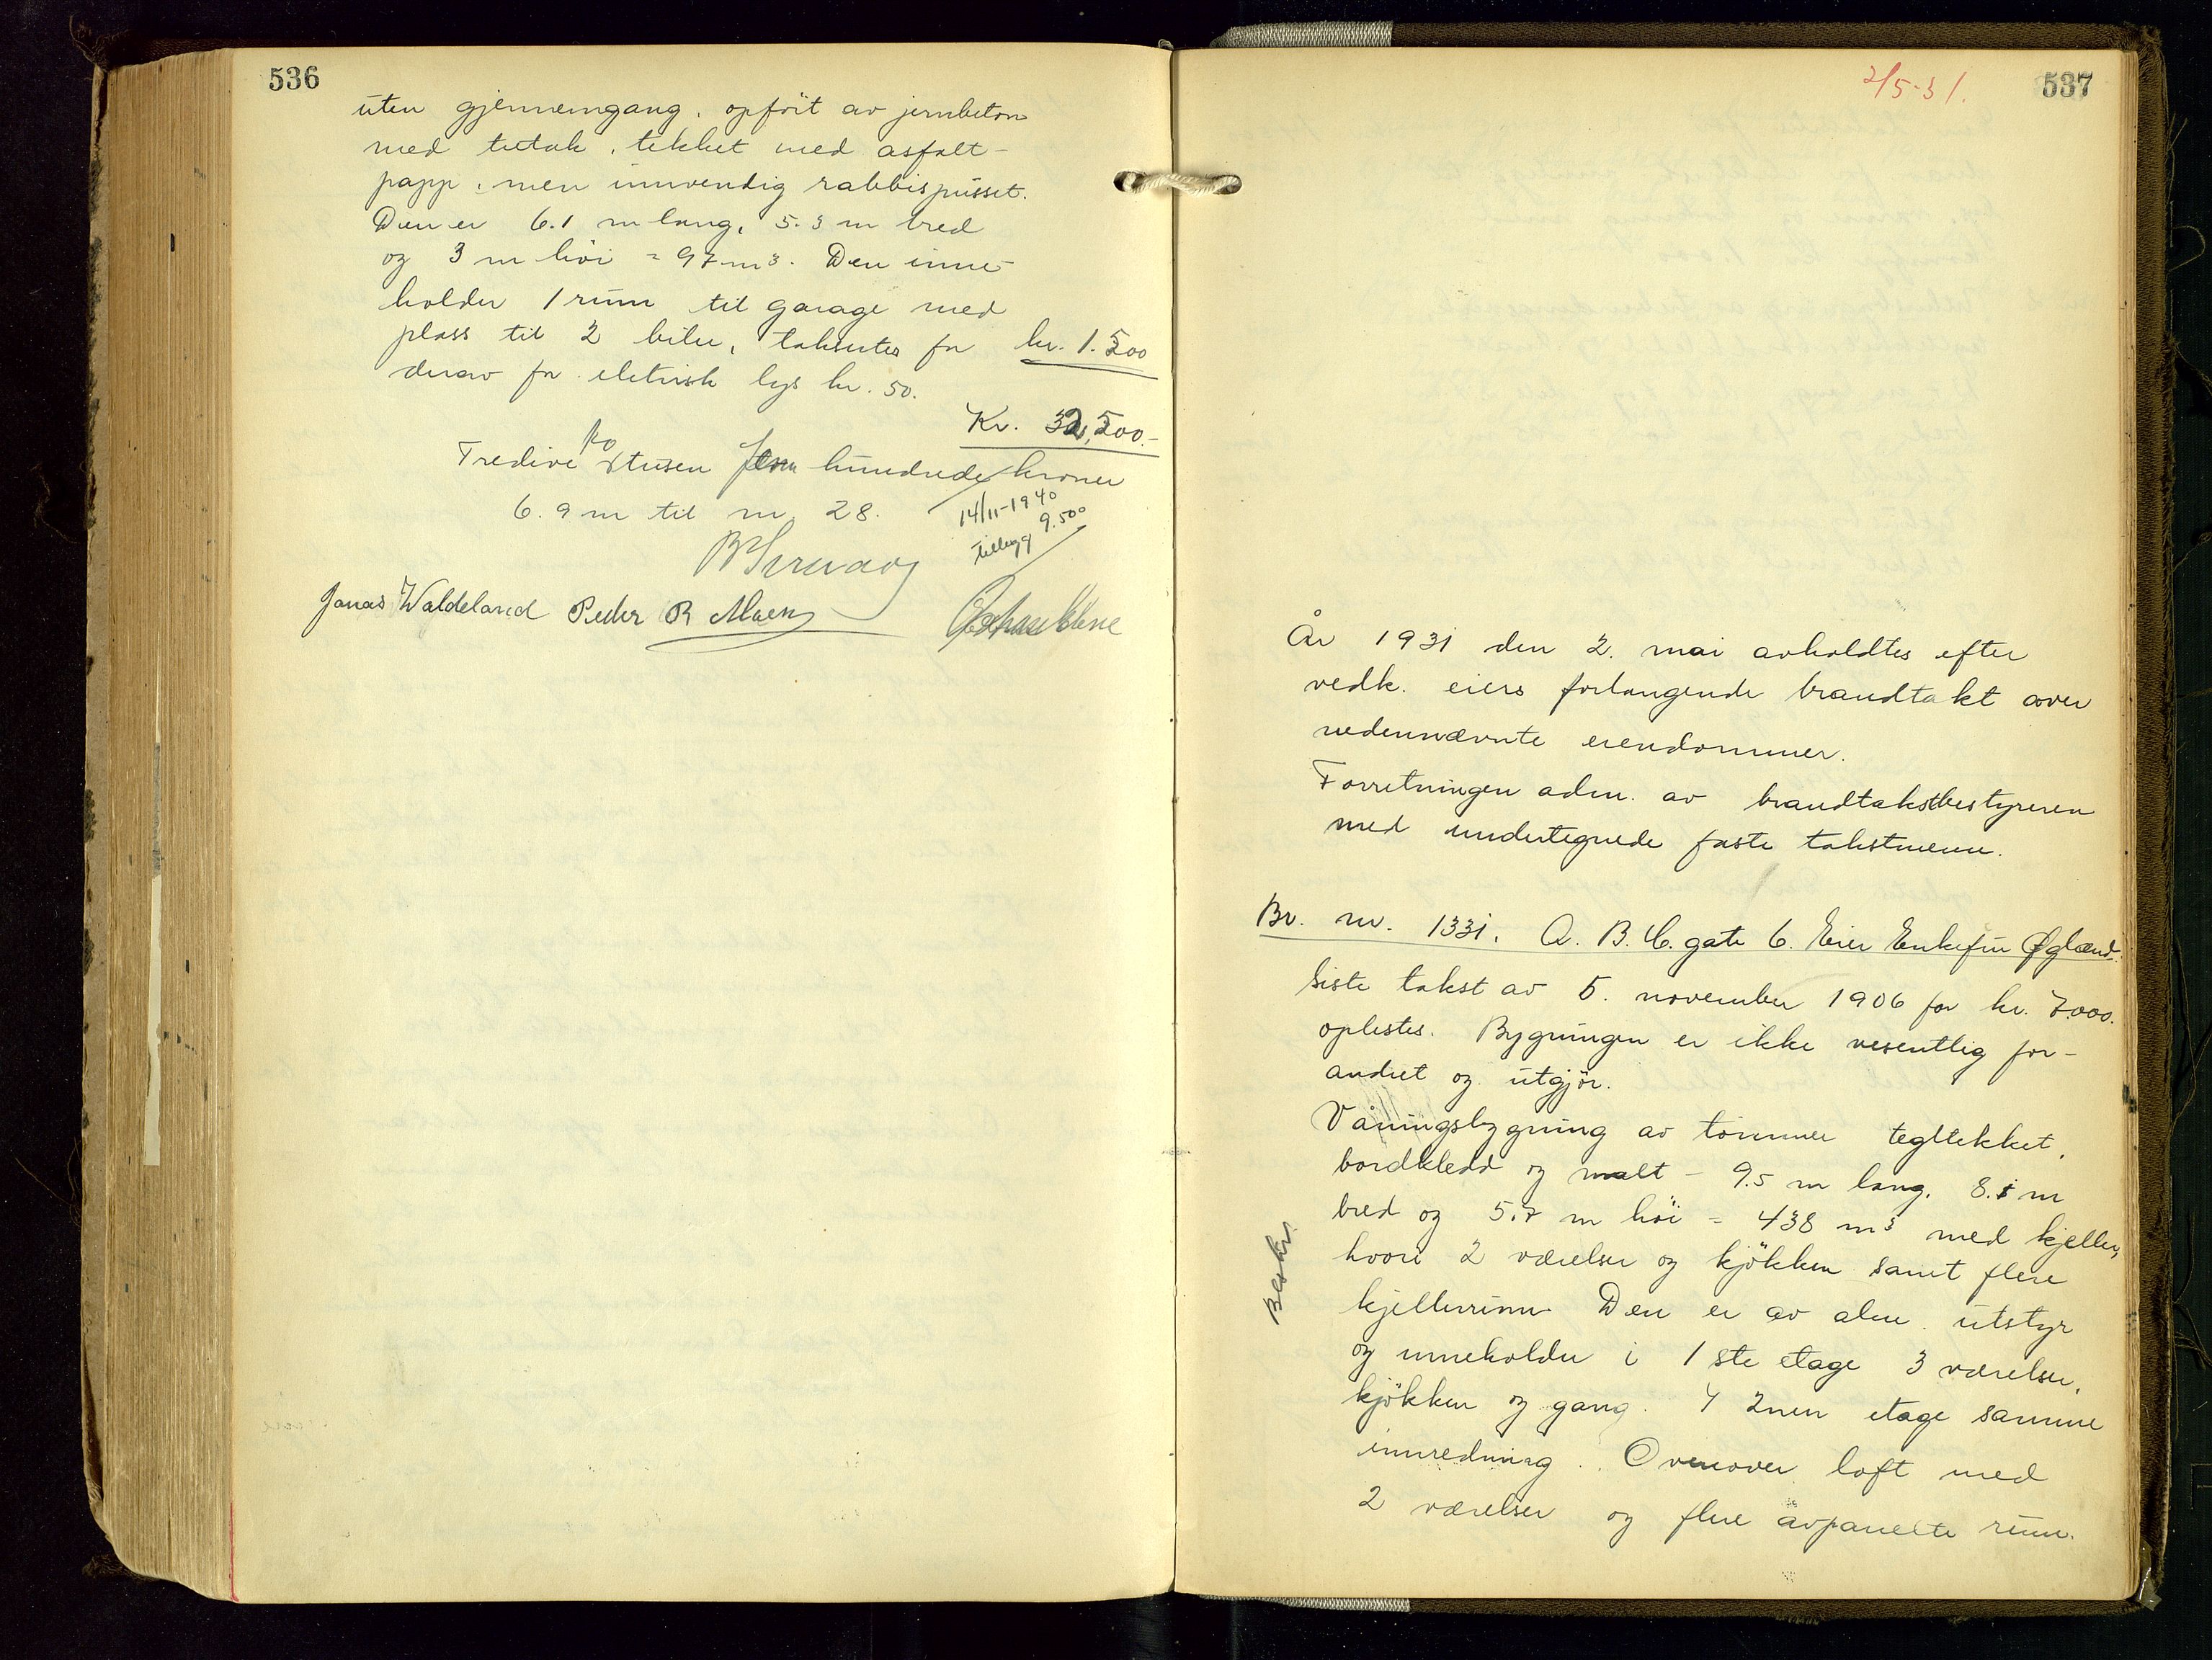 536
uten gjennemgang, opført av jernbeton
med tretak, tekket med asfalt-
papp, men innvendig rabbispusset.
Den er 6.1 m lang, 5.3 m bred
og 3 m høi = 97 m3. Den inne-
holder 1 rum til garage med
plass til 2 biler, takseres for kr. 1.500
derav for eletrisk lys kr. 50.
Kr. 32,500.-
to
Tredive tusen fem hundrede kroner
6.9 m til nr. 28.
14/11-1940
tillegg 9.500
Jonas Waldeland Peder R Moen
2/5-31.
537
År 1931 den 2. mai avholdtes efter
vedk. eiers forlangende brandtakt over
nedennævnte eiendommer.
Forretningen adm. av brandtakstbestyreren
med undertegnede faste takstmenn.
Br. nr. 1331. A. B. C. gate 6. Eier Enkefru Øglænd.
Siste takst av 5. november 1906 for kr. 7.000.
oplestes. Bygningen er ikke vesentlig for-
andret og utgjør.
Våningsbygning av tømmer tegltekket,
bordkledd og malt - 9.5 m lang, 8.1 m
bred og 5.7 m høi = 438 m3 med kjeller,
hvori 2 værelser og kjøkken samt flere
kjellerrum. Den er av alm. utstyr
og inneholder i 1ste etage 3 værelser,
kjøkken og gang. I 2nen etage samme
innredning. Ovenover loft med
2 værelser og flere avpanelte rum.
Beskr.